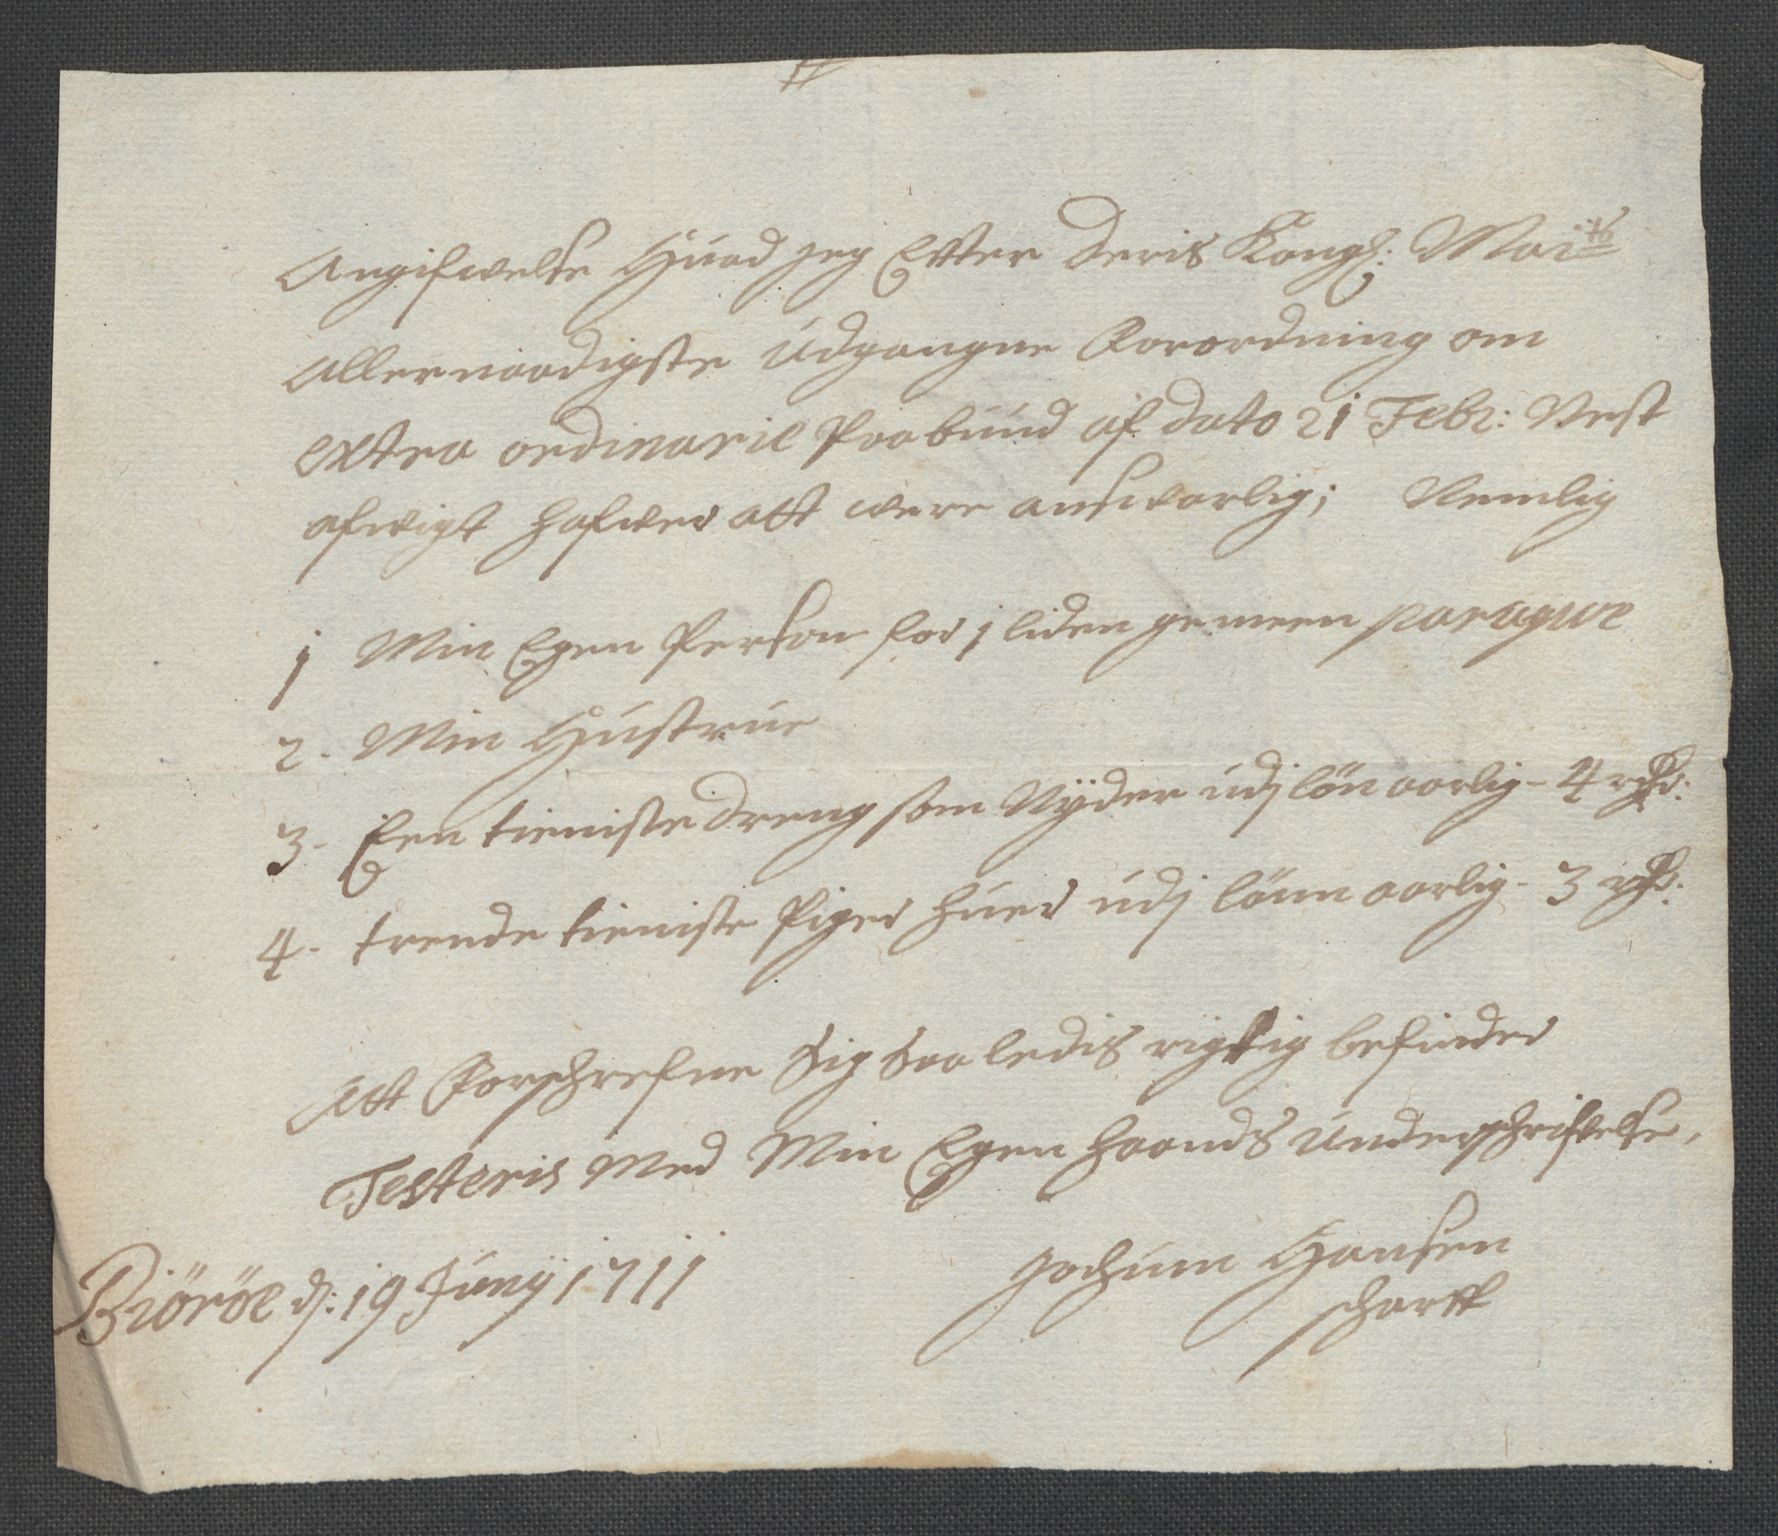 Angifwelse Huad jeg Efter Deris Kongl: Mai:ts
Allernaadigste Udgangne Forordning om
extra ordinarie Paabuud af dato 21 Febr: Nest
afvigt hafver att were answarlig; Nemlig
1 Min Egen Person for 1 liden gemeen paruqve
2. Min Hustrue
3. Een tieniste dreng som Nÿder udj lön aarlig - 4 rdr:
4. trende tieniste Piger huer udj lönn aarlig - 3 rdr:
Att Forschrefne Sig Saaledis rigtig befinder
Testeris Med Min Egen haands underschriftelse,
Biöröe d: 19 Junÿ 1711
Jochum Hansen
schartt